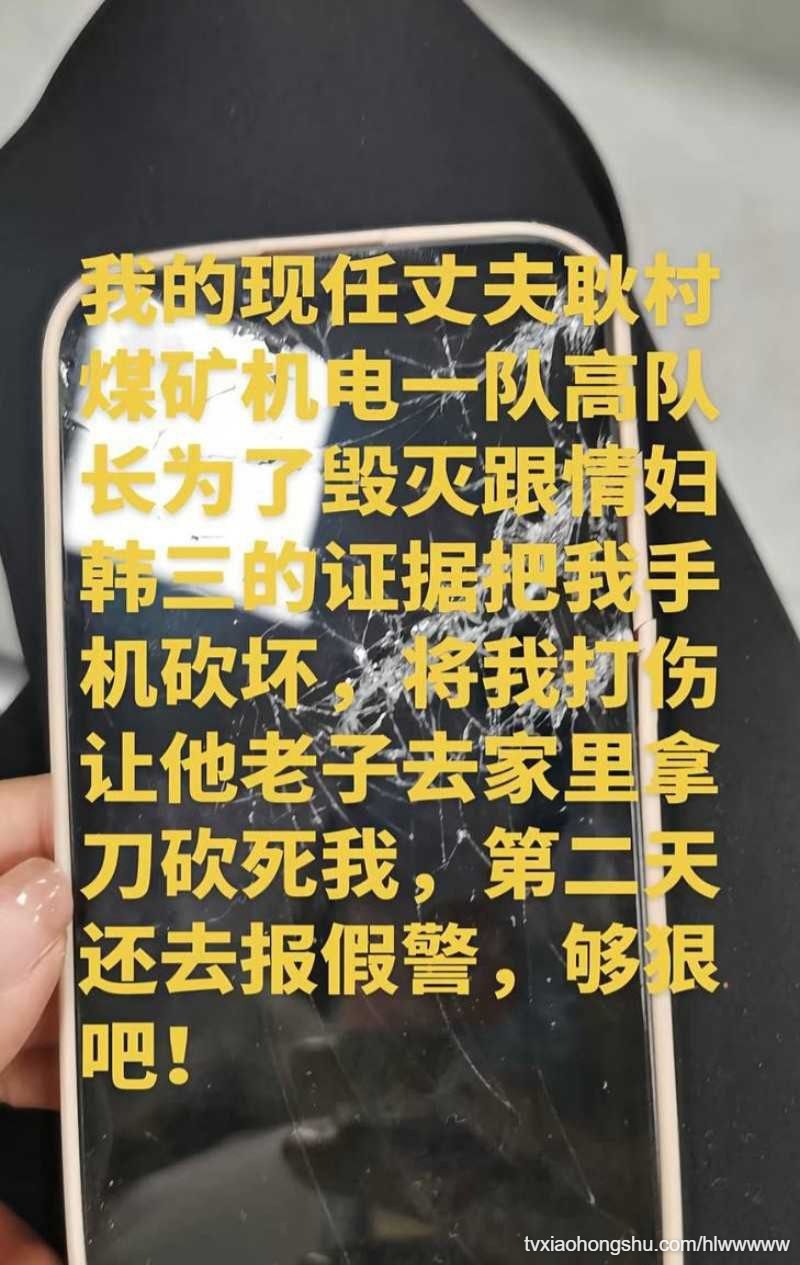 我的现任丈夫耿村
煤矿机电一队高队
长为了毁灭跟情妇
韩三的证据把我手
机砍坏，将我打伤
让他老子去家里拿
刀砍死我，第二天
还去报假警，够狠
吧！
tvxiaohongshu.com/hlwwwww